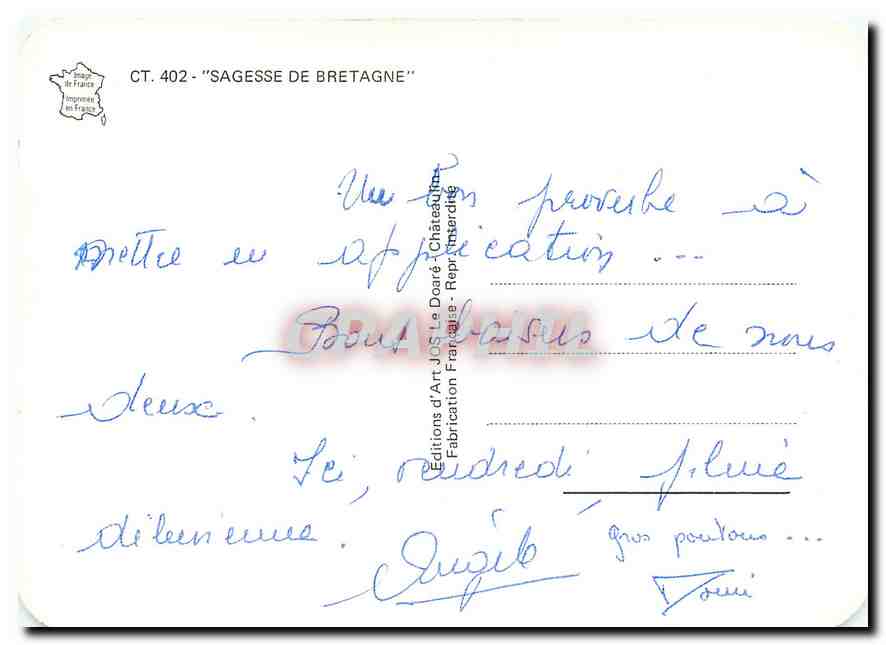 Image
de France
Imprimée
en France
CT. 402 - "SAGESSE DE BRETAGNE"
Editions d'Art JOS Le Doaré - Châteaulin
Fabrication Française - Repr. Interdite
Un bon proverbe à
mettre en application ...
Bons baisers de nous
deux.
Ici, vendredi, pluie
diluvienne.
Angèle
gros poutous ...